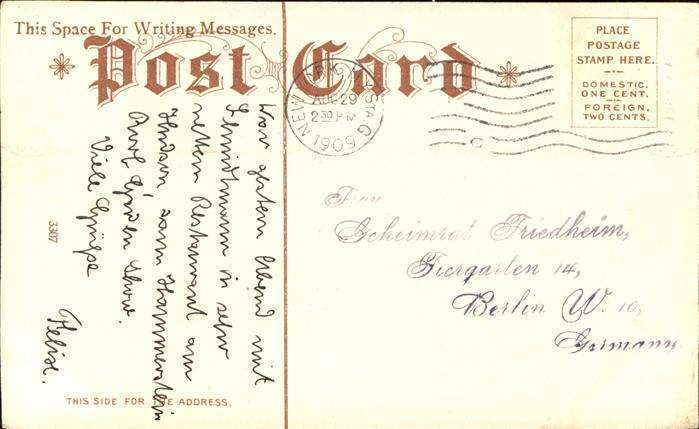 This Space For Writing Messages.
Post Card
PLACE
POSTAGE
STAMP HERE.
DOMESTIC,
ONE CENT.
FOREIGN,
TWO CENTS.
NEW STA. G
AUG 29
2 30 PM
1909
War gestern Abend mit
in sehr
nettem Restaurant am
Hudson, dann Hammerstein
Roof Garden Show.
Viele Grüsse
Felix.
3307
Frau
Geheimrat Friedheim,
Tiergarten 14,
Berlin W. 10,
Germany
THIS SIDE FOR THE ADDRESS.